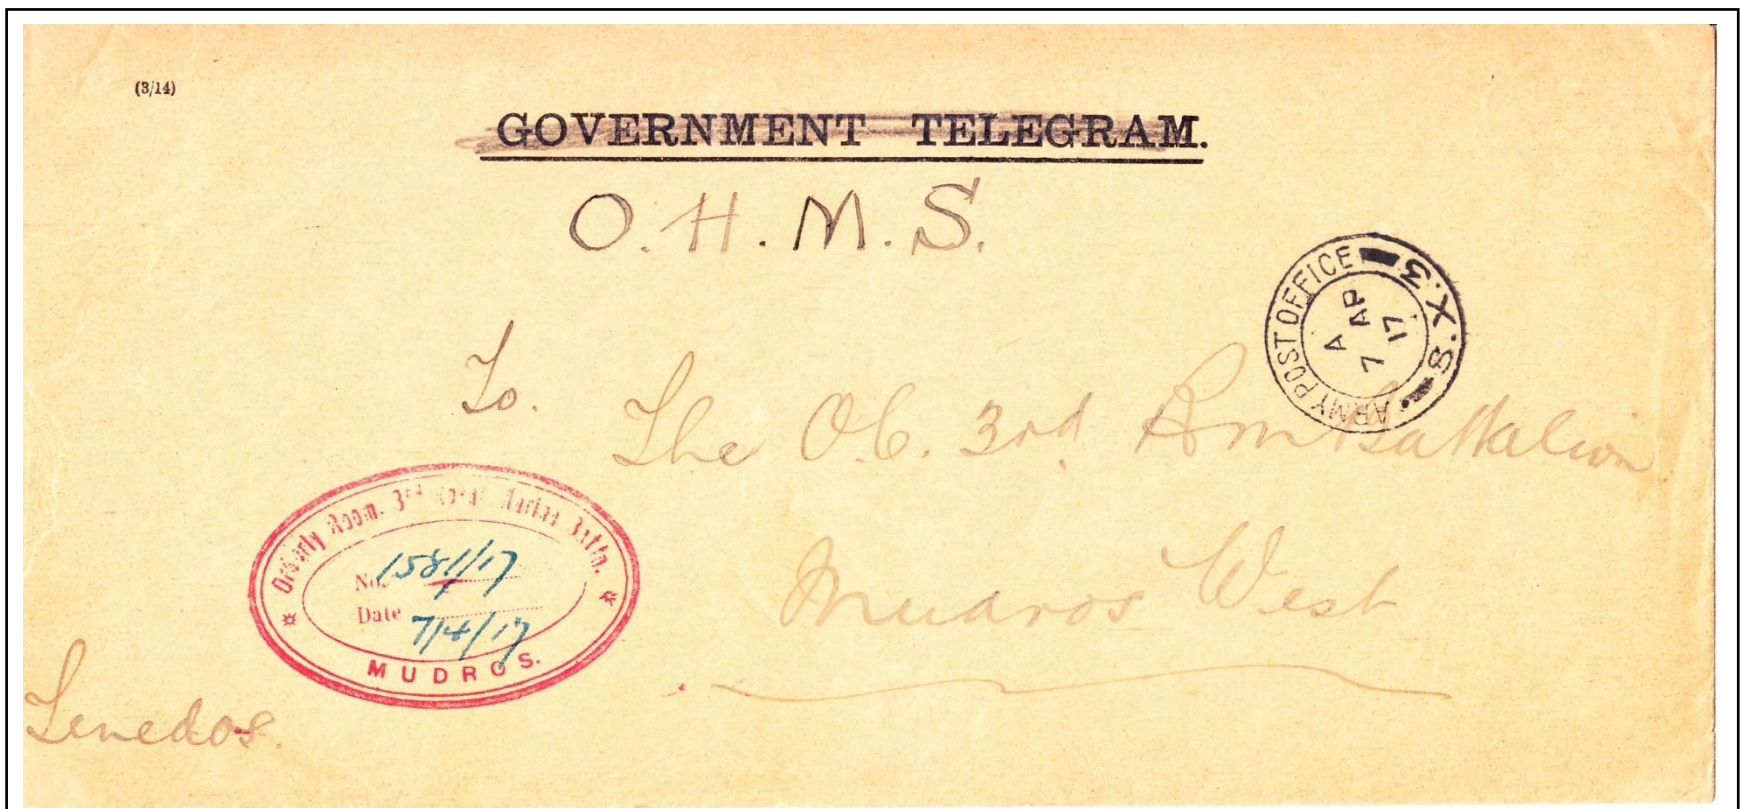 (3/14)
GOVERNMENT TELEGRAM.
O.H.M.S.
ARMY POST OFFICE S.X.3
A
7 AP
17
To.
The O.C. 3rd Rm Battalion
Mudros West
Orderly Room. 3rd Royal Marine Battn.
No. 1581/17
Date 7/4/17
MUDROS.
Tenedos.